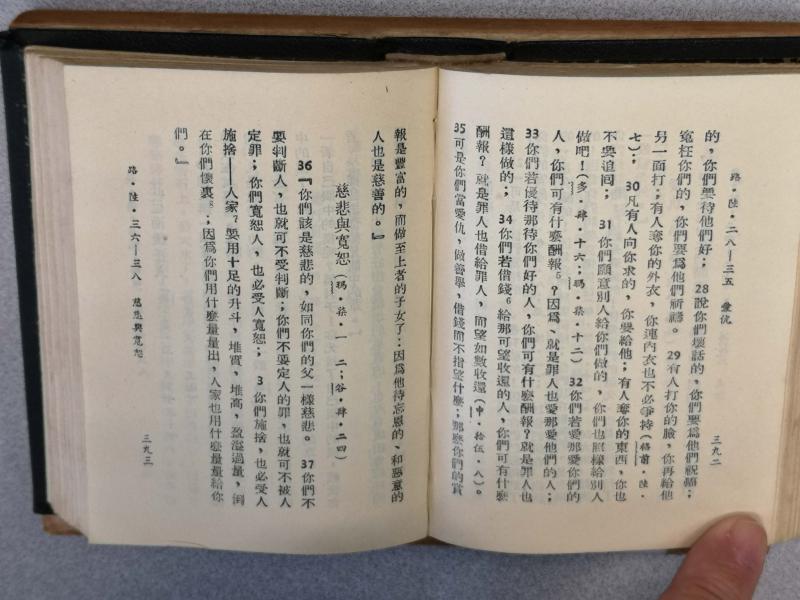 路・陸・二八—三五　愛仇　三九二
的，你們要待他們好；28說你們壞話的，你們要爲他們祝福；
冤枉你們的，你們要爲他們祈禱。29有人打你的臉，你再給他
另一面打；有人奪你的外衣，你連內衣也不必爭持（格前・陸・
七）；30凡有人向你求的，你要給他；有人奪你的東西，你也
不要追囘；31你們願意別人給你們做的，你們也照樣給別人
做吧！（多・肆・十六；瑪・柒・十二）32你們若愛那愛你們的
人，你們可有什麽酬報5？因爲、就是罪人也愛那愛他們的人；
33你們若優待那待你們好的人，你們可有什麽酬報？就是罪人也
這樣做的；34你們若借錢6給那可望收還的人，你們可有什麽
酬報？就是罪人也借給罪人，而望如數收還（申・拾伍・八）。
35可是你們當愛仇，做善擧，借錢而不指望什麽；那麽你們的賞
報是豐富的，而做至上者的子女了：因爲他待忘恩的、和惡意的
人也慈善的。』
慈悲與寬恕（瑪・柒・一　二；谷・肆・二四）
36『你們該是慈悲的，如同你們的父一樣慈悲。37你們不
要判斷人，也就可不受判斷；你們不要定人的罪，也就可不被人
定罪；你們寬恕人，也必受人寬恕；3 你們施捨，也必受人
施捨——人家7要用十足的升斗，堆實，堆高，盈溢過量，倒
在你們懷裏8；因爲你們用什麽量量出，人家也用什麽量量給你
們。』
路・陸・三六—三八　慈悲與寬恕　三九三